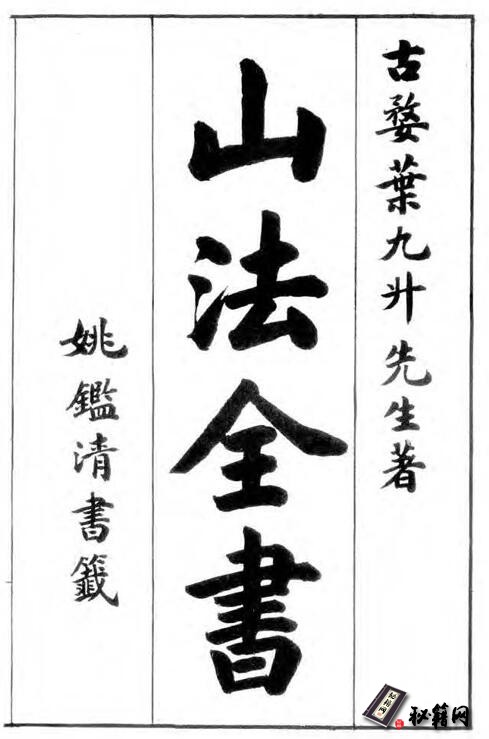 古婺葉九升先生著
山法全書
姚鑑清書籤
秘籍网
秘籍网